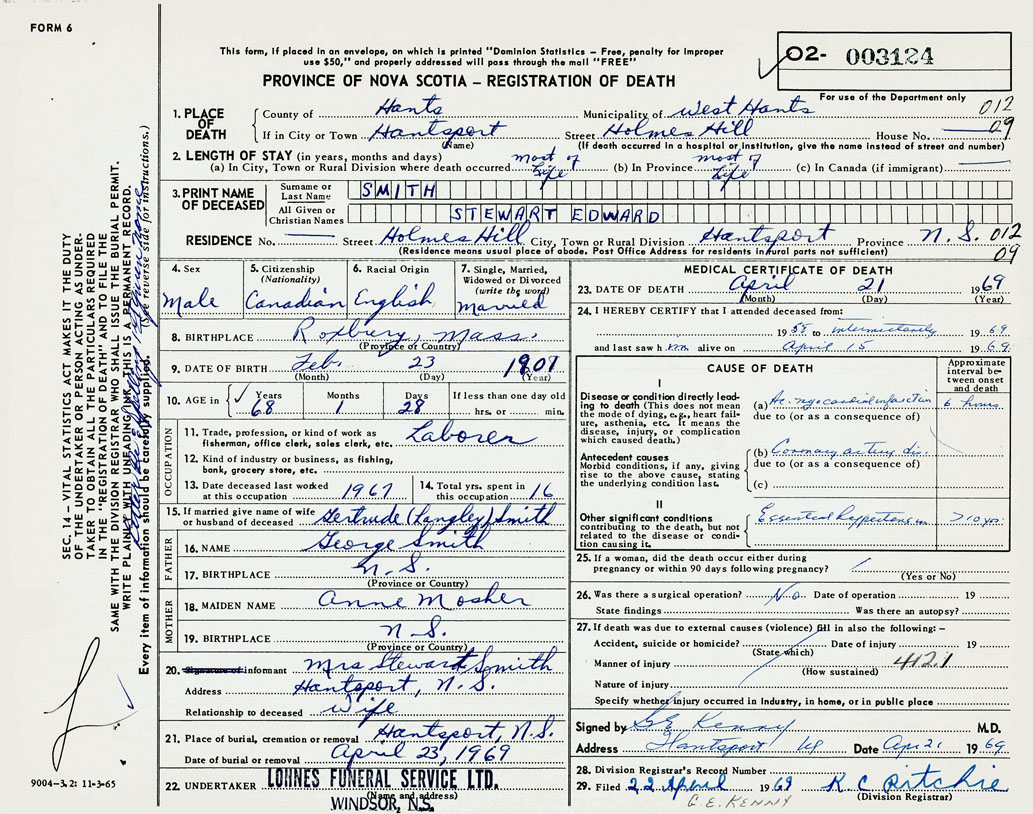 FORM 6
This form, if placed in an envelope, on which is printed "Dominion Statistics – Free, penalty for improper
use $50," and properly addressed will pass through the mail "FREE"
PROVINCE OF NOVA SCOTIA – REGISTRATION OF DEATH
O2- 003124
For use of the Department only
012
09
1. PLACE OF DEATH
County of Hants Municipality of West Hants
If in City or Town Hantsport Street Holmes Hill House No.
(Name) (If death occurred in a hospital or institution, give the name instead of street and number)
2. LENGTH OF STAY (in years, months and days)
(a) In City, Town or Rural Division where death occurred most of life (b) In Province most of life (c) In Canada (if immigrant)
3. PRINT NAME OF DECEASED
Surname or Last Name SMITH
All Given or Christian Names STEWART EDWARD
RESIDENCE No. Street Holmes Hill City, Town or Rural Division Hantsport Province N.S. 012
(Residence means usual place of abode. Post Office Address for residents in rural parts not sufficient) 09
4. Sex Male
5. Citizenship (Nationality) Canadian
6. Racial Origin English
7. Single, Married, Widowed or Divorced (write the word) Married
8. BIRTHPLACE Roxbury, Mass.
(Province or Country)
9. DATE OF BIRTH Feb. 23 1901
(Month) (Day) (Year)
10. AGE in Years 68 Months 1 Days 28 If less than one day old hrs. or min.
OCCUPATION
11. Trade, profession, or kind of work as fisherman, office clerk, sales clerk, etc. Laborer
12. Kind of industry or business, as fishing, bank, grocery store, etc.
13. Date deceased last worked at this occupation 1967
14. Total yrs. spent in this occupation 16
15. If married give name of wife or husband of deceased Gertrude (Langley) Smith
FATHER
16. NAME George Smith
17. BIRTHPLACE N.S.
(Province or Country)
MOTHER
18. MAIDEN NAME Anne Mosher
19. BIRTHPLACE N.S.
(Province or Country)
20. Signature of informant Mrs Stewart Smith
Address Hantsport, N.S.
Relationship to deceased Wife
21. Place of burial, cremation or removal Hantsport, N.S.
Date of burial or removal April 23, 1969
22. UNDERTAKER LOHNES FUNERAL SERVICE LTD.
(Name and address)
WINDSOR, N.S.
MEDICAL CERTIFICATE OF DEATH
23. DATE OF DEATH April 21 1969
(Month) (Day) (Year)
24. I HEREBY CERTIFY that I attended deceased from:
1958 to intermittently 1969
and last saw him alive on April 15 1969
CAUSE OF DEATH
Approximate interval between onset and death
I
Disease or condition directly leading to death (This does not mean the mode of dying, e.g., heart failure, asthenia, etc. It means the disease, injury, or complication which caused death.)
(a) Ac. myocardial infarction 6 hours
due to (or as a consequence of)
Antecedent causes
Morbid conditions, if any, giving rise to the above cause, stating the underlying condition last.
(b) Coronary artery dis.
due to (or as a consequence of)
(c)
II
Other significant conditions contributing to the death, but not related to the disease or condition causing it.
Essential hypertension >10 yrs.
25. If a woman, did the death occur either during pregnancy or within 90 days following pregnancy?
(Yes or No)
26. Was there a surgical operation? No Date of operation 19
State findings Was there an autopsy?
27. If death was due to external causes (violence) fill in also the following: –
Accident, suicide or homicide? Date of injury 19
(State which)
Manner of injury 4121
(How sustained)
Nature of injury
Specify whether injury occurred in Industry, in home, or in public place
Signed by G E Kenny M.D.
Address Hantsport NS Date Apr 21 1969
28. Division Registrar's Record Number
29. Filed 22 April 1969 K C Ritchie
G.E. KENNY (Division Registrar)
SEC. 14 – VITAL STATISTICS ACT MAKES IT THE DUTY
OF THE UNDERTAKER OR PERSON ACTING AS UNDER-
TAKER TO OBTAIN ALL THE PARTICULARS REQUIRED
IN THE "REGISTRATION OF DEATH" AND TO FILE THE
SAME WITH THE DIVISION REGISTRAR WHO SHALL ISSUE THE BURIAL PERMIT.
WRITE PLAINLY WITH UNFADING INK. THIS IS A PERMANENT RECORD.
Every item of information should be carefully supplied. (See reverse side for instructions.)
9004-3.2: 11-3-65